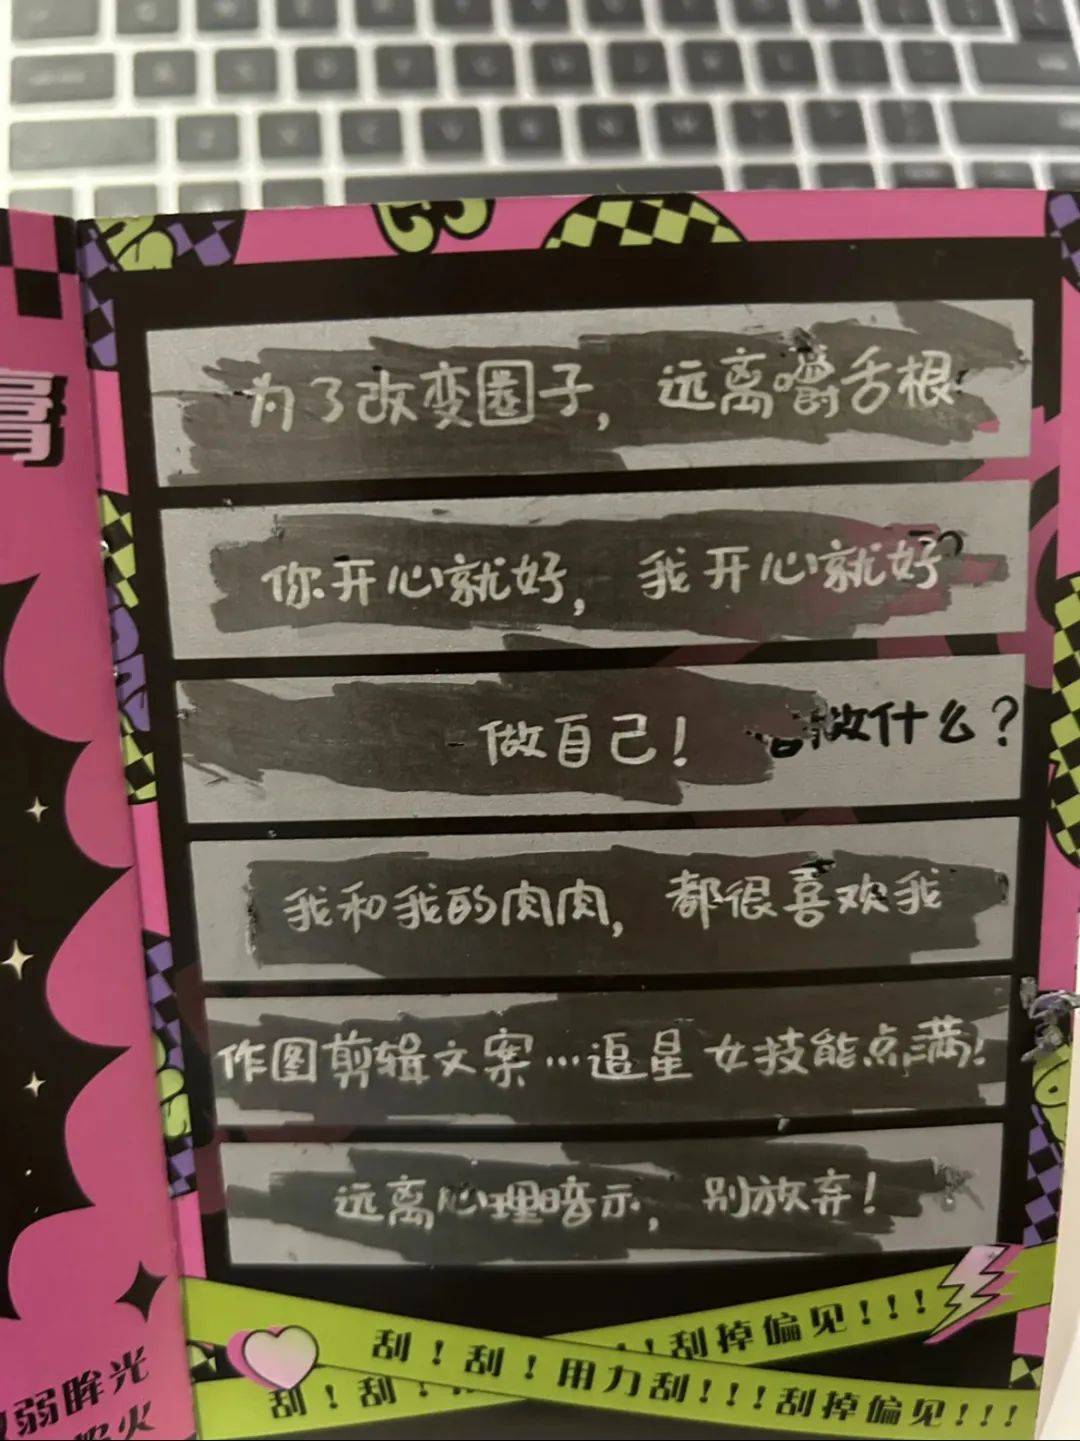 为了改变圈子，远离嚼舌根
你开心就好，我开心就好
做自己！
做什么？
我和我的肉肉，都很喜欢我
作图剪辑文案…追星女技能点满！
远离心理暗示，别放弃！
！！刮掉偏见！！！
刮！刮！用力刮！！！刮掉偏见！！！
刮！刮！
弱眸光
火